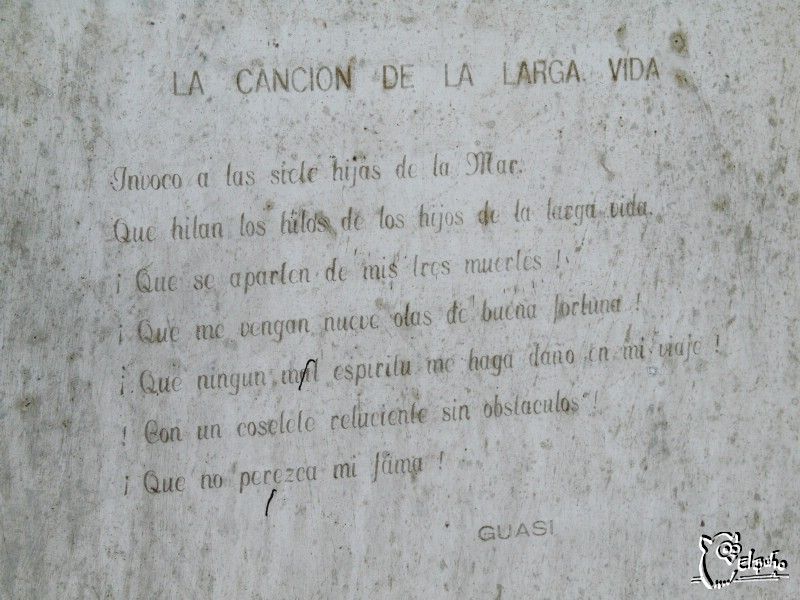 LA CANCION DE LA LARGA VIDA
Invoco a las siete hijas de la Mar.
Que hilan los hilos de los hijos de la larga vida.
¡ Que se aparten de mis tres muertes !
¡ Que me vengan nueve olas de buena fortuna !
¡ Que ningun mal espiritu me haga daño en mi viaje !
! Con un coselete reluciente sin obstaculos !
¡ Que no perezca mi fama !
GUASI